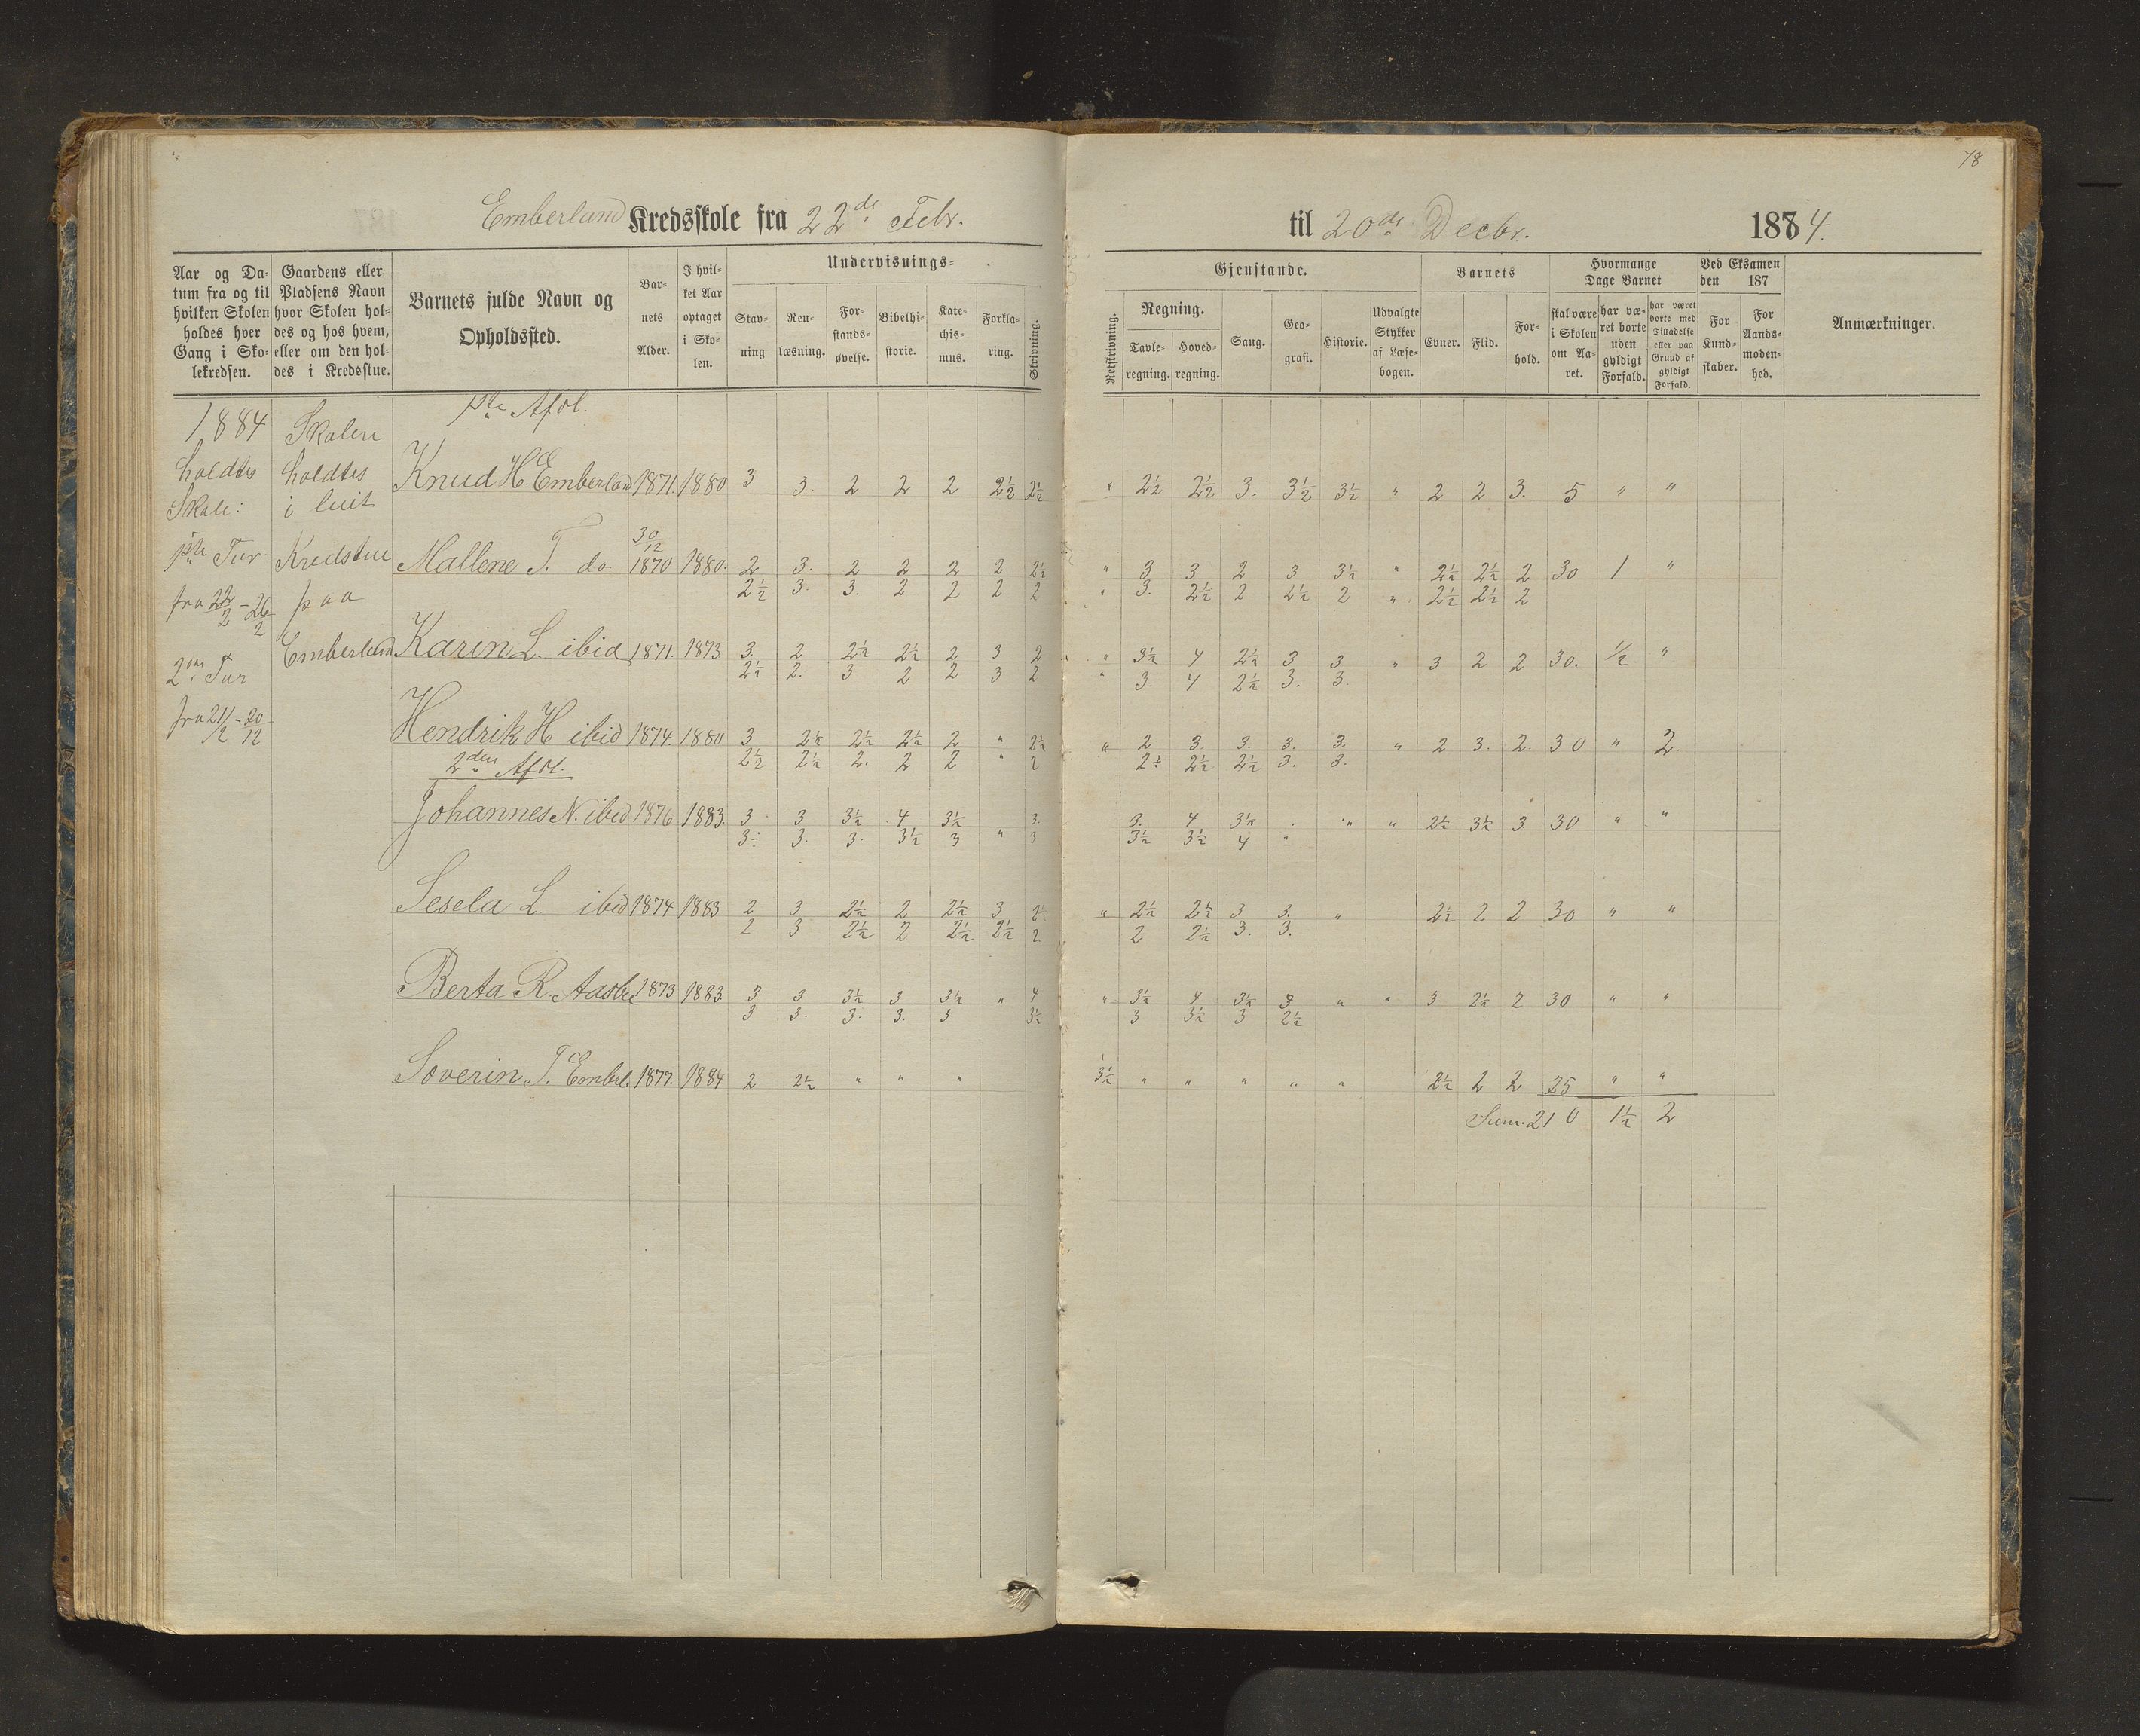 78
Emberland Kredsskole fra 22de Febr. til 20de Decbr. 1884.
Aar og Da-
tum fra og til
hvilken Skolen
holdes hver
Gang i Sko-
lekredsen.
Gaardens eller
Pladsens Navn
hvor Skolen hol-
des og hos hvem,
eller om den hol-
des i Kredsstue.
Barnets fulde Navn og
Opholdssted.
Bar-
nets
Alder.
I hvil-
ket Aar
optaget
i Sko-
len.
Undervisnings-
Stav-
ning
Ren-
læsning.
For-
stands-
øvelse.
Bibelhi-
storie.
Kate-
chis-
mus.
Forkla-
ring.
Skrivning.
Gjenstande.
Retskrivning.
Regning.
Tavle-
regning.
Hoved-
regning.
Sang.
Geo-
grafi.
Historie.
Udvalgte
Stykker
af Læse-
bogen.
Barnets
Evner.
Flid.
For-
hold.
Hvormange
Dage Barnet
skal være
i Skolen
om Aa-
ret.
har væ-
ret borte
uden
gyldigt
Forfald.
har været
borte med
Tilladelse
eller paa
Grund af
gyldigt
Forfald.
Ved Eksamen
den 187
For
Kund-
skaber.
For
Aands-
moden-
hed.
Anmærkninger.
1884
holdtes
Skole:
1ste Tur
fra 22/2 - 26/2
2den Tur
fra 21/12 - 20/12
Skolen
holdtes
i leiet
Kredstue
paa
Emberland
1ste Afdl.
Knud H. Emberland 1871. 1880 3 3. 2 2 2 2½ 2½ " 2½ 2½ 3. 3½ 3½ " 2 2 3. 5 " "
30/12
Mallene T. do 1870 1880. 2 3. 2 2 2 2 2½ " 3 3 2 3 3½ " 2½ 2½ 2 30 1 "
2½ 3. 3. 2 2 2 2 " 3. 2½ 2 2½ 2 " 2½ 2½ 2
Karin L. ibid 1871. 1873 3. 2 2½ 2½ 2 3 2 " 3½ 4 2½ 3 3 " 3 2 2 30. ½ "
2½ 2. 3 2 2 3 2 " 3. 4 2½ 3. 3.
Hendrik H ibid 1874. 1880 3 2½ 2½ 2½ 2 " 2½ " 2 3. 3. 3. 3. " 2 3. 2. 30 " 2.
2den Afdl. 2½ 2½ 2. 2 2 " 2 2½ 2½ 2½ 3. 3.
Johannes N. ibid 1876 1883. 3 3 3½ 4 3½ 3. 3. 4 3½ " " " 2½ 3½ 3. 30 " "
3½ 3. 3. 3½ 3 " 3 3½ 3½ 4 "
Sesela L. ibid 1874 1883 2 3 2½ 2 2½ 3 2½ " 2½ 2½ 3 3. " 2½ 2 2 30 " "
2 3 2½ 2 2½ 2½ 2 2 2½ 3. 3.
Berta R. 1873 1883 3 3 3½ 3 3½ " 4 " 3½ 4 3½ 3 " " 3 2½ 2 30 " "
3 3. 3. 3. 3 3½ 3 3½ 3 2½
Soverin T. Embrl. 1877. 1884 2 2½ " " " 3½ " " " " " 2½ 2 2 25 " "
Sum. 210 1½ 2